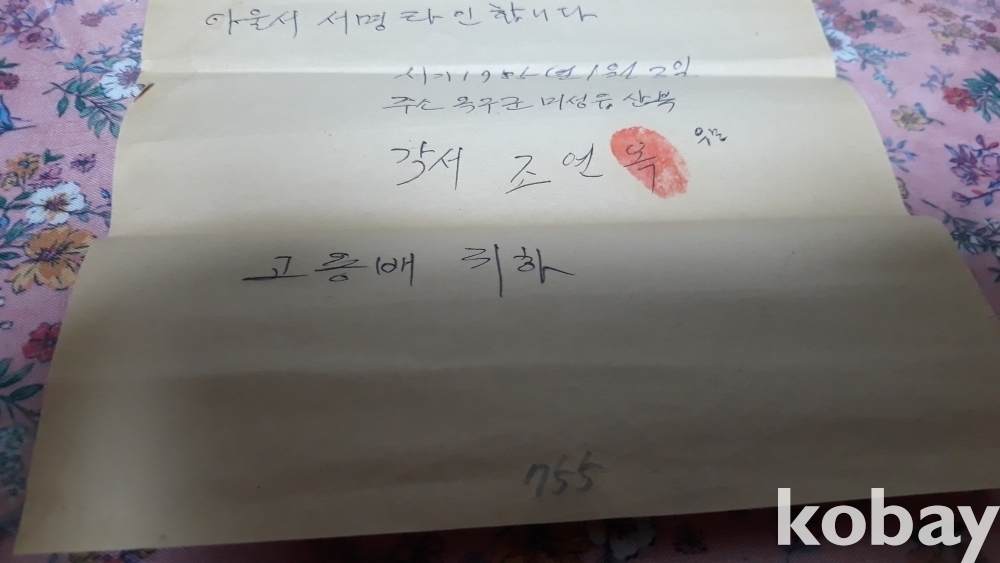 아울서 서명 타인 합니다
1월 2일
주소 옥구군 미성읍 산북
각서 조연옥
고용배 귀하
755
kobay